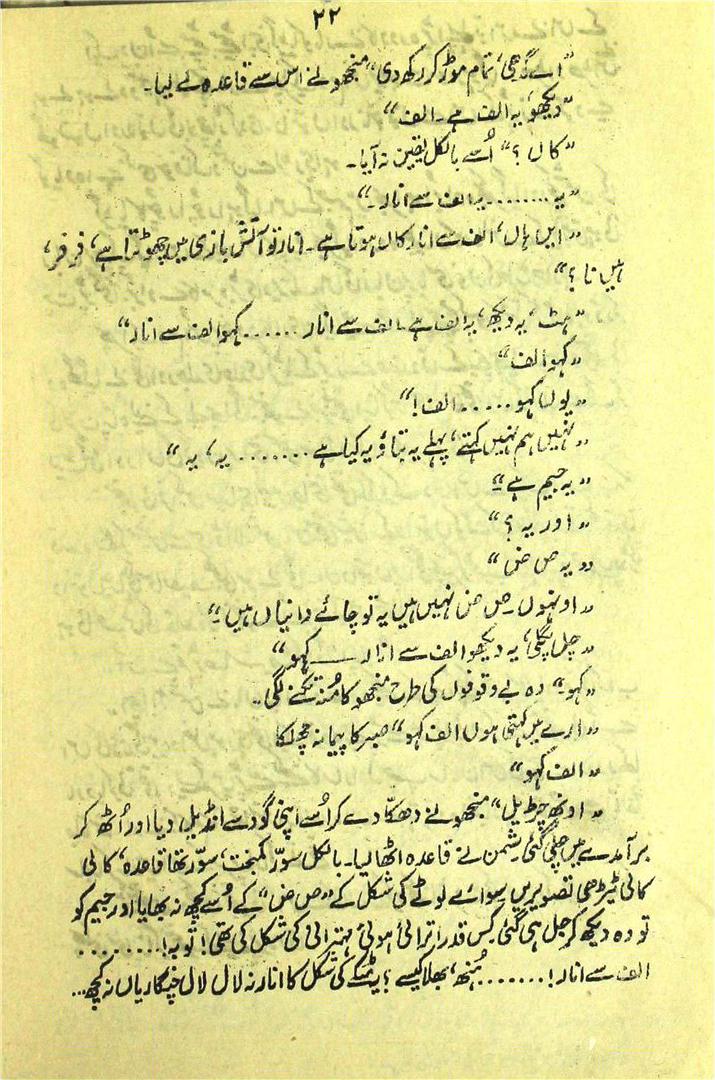 ۲۲
"اے گدھی، تمام موڑ کر رکھ دی" منجھو نے اس سے قاعدہ لے لیا۔
"دیکھو، یہ الف ہے۔ الف"
"کاں؟" اُسے بالکل یقین نہ آیا۔
"یہ ........ یہ الف سے انار۔"
"ایں ہاں، الف سے انار کاں ہوتا ہے۔ انار تو آتش بازی میں چھوٹتا ہے، فر فر،
ہیں نا؟"
"ہٹ، یہ دیکھ، یہ الف ہے۔ الف سے انار ...... کہو الف سے انار"
"کہو الف"
"یوں کہو ..... الف!"
"نہیں ہم نہیں کہتے، پہلے یہ بتاؤ یہ کیا ہے ....... یہ، یہ"
"یہ جیم ہے"
"اور یہ؟"
"یہ ص ض"
"اونہوں۔ ص ض نہیں ہیں یہ تو چائے دانیاں ہیں"
"چل پگلی، یہ دیکھو الف سے انار ــــــ کہو"
"کہو" وہ بے وقوفوں کی طرح منجھو کا مُنہ تکنے لگی۔
"ارے میں کہتی ہوں الف کہو" صبر کا پیمانہ چھلکا
"الف کہو"
"اونھ چڑیل" منجھو نے دھکا دے کر اُسے اپنی گود سے انڈیل دیا اور اُٹھ کر
برآمدے میں چلی گئی۔ شمن نے قاعدہ اٹھا لیا۔ بالکل سوّر کمبخت، سوّر تھا قاعدہ، کالی
کالی ٹیڑھی تصویریں سوائے لوٹے کی شکل کے "ص ض" کے اُسے کچھ نہ بھایا اور جیم کو
تو وہ دیکھ کر جل ہی گئی کس قدر اترائی ہوئی مہترانی کی شکل کی تھی! توبہ! .........
الف سے انار! ....... ہُنھ، بھلا کیسے؟ کی شکل کا انار نہ لال لال چنگاریاں نہ کچھ...